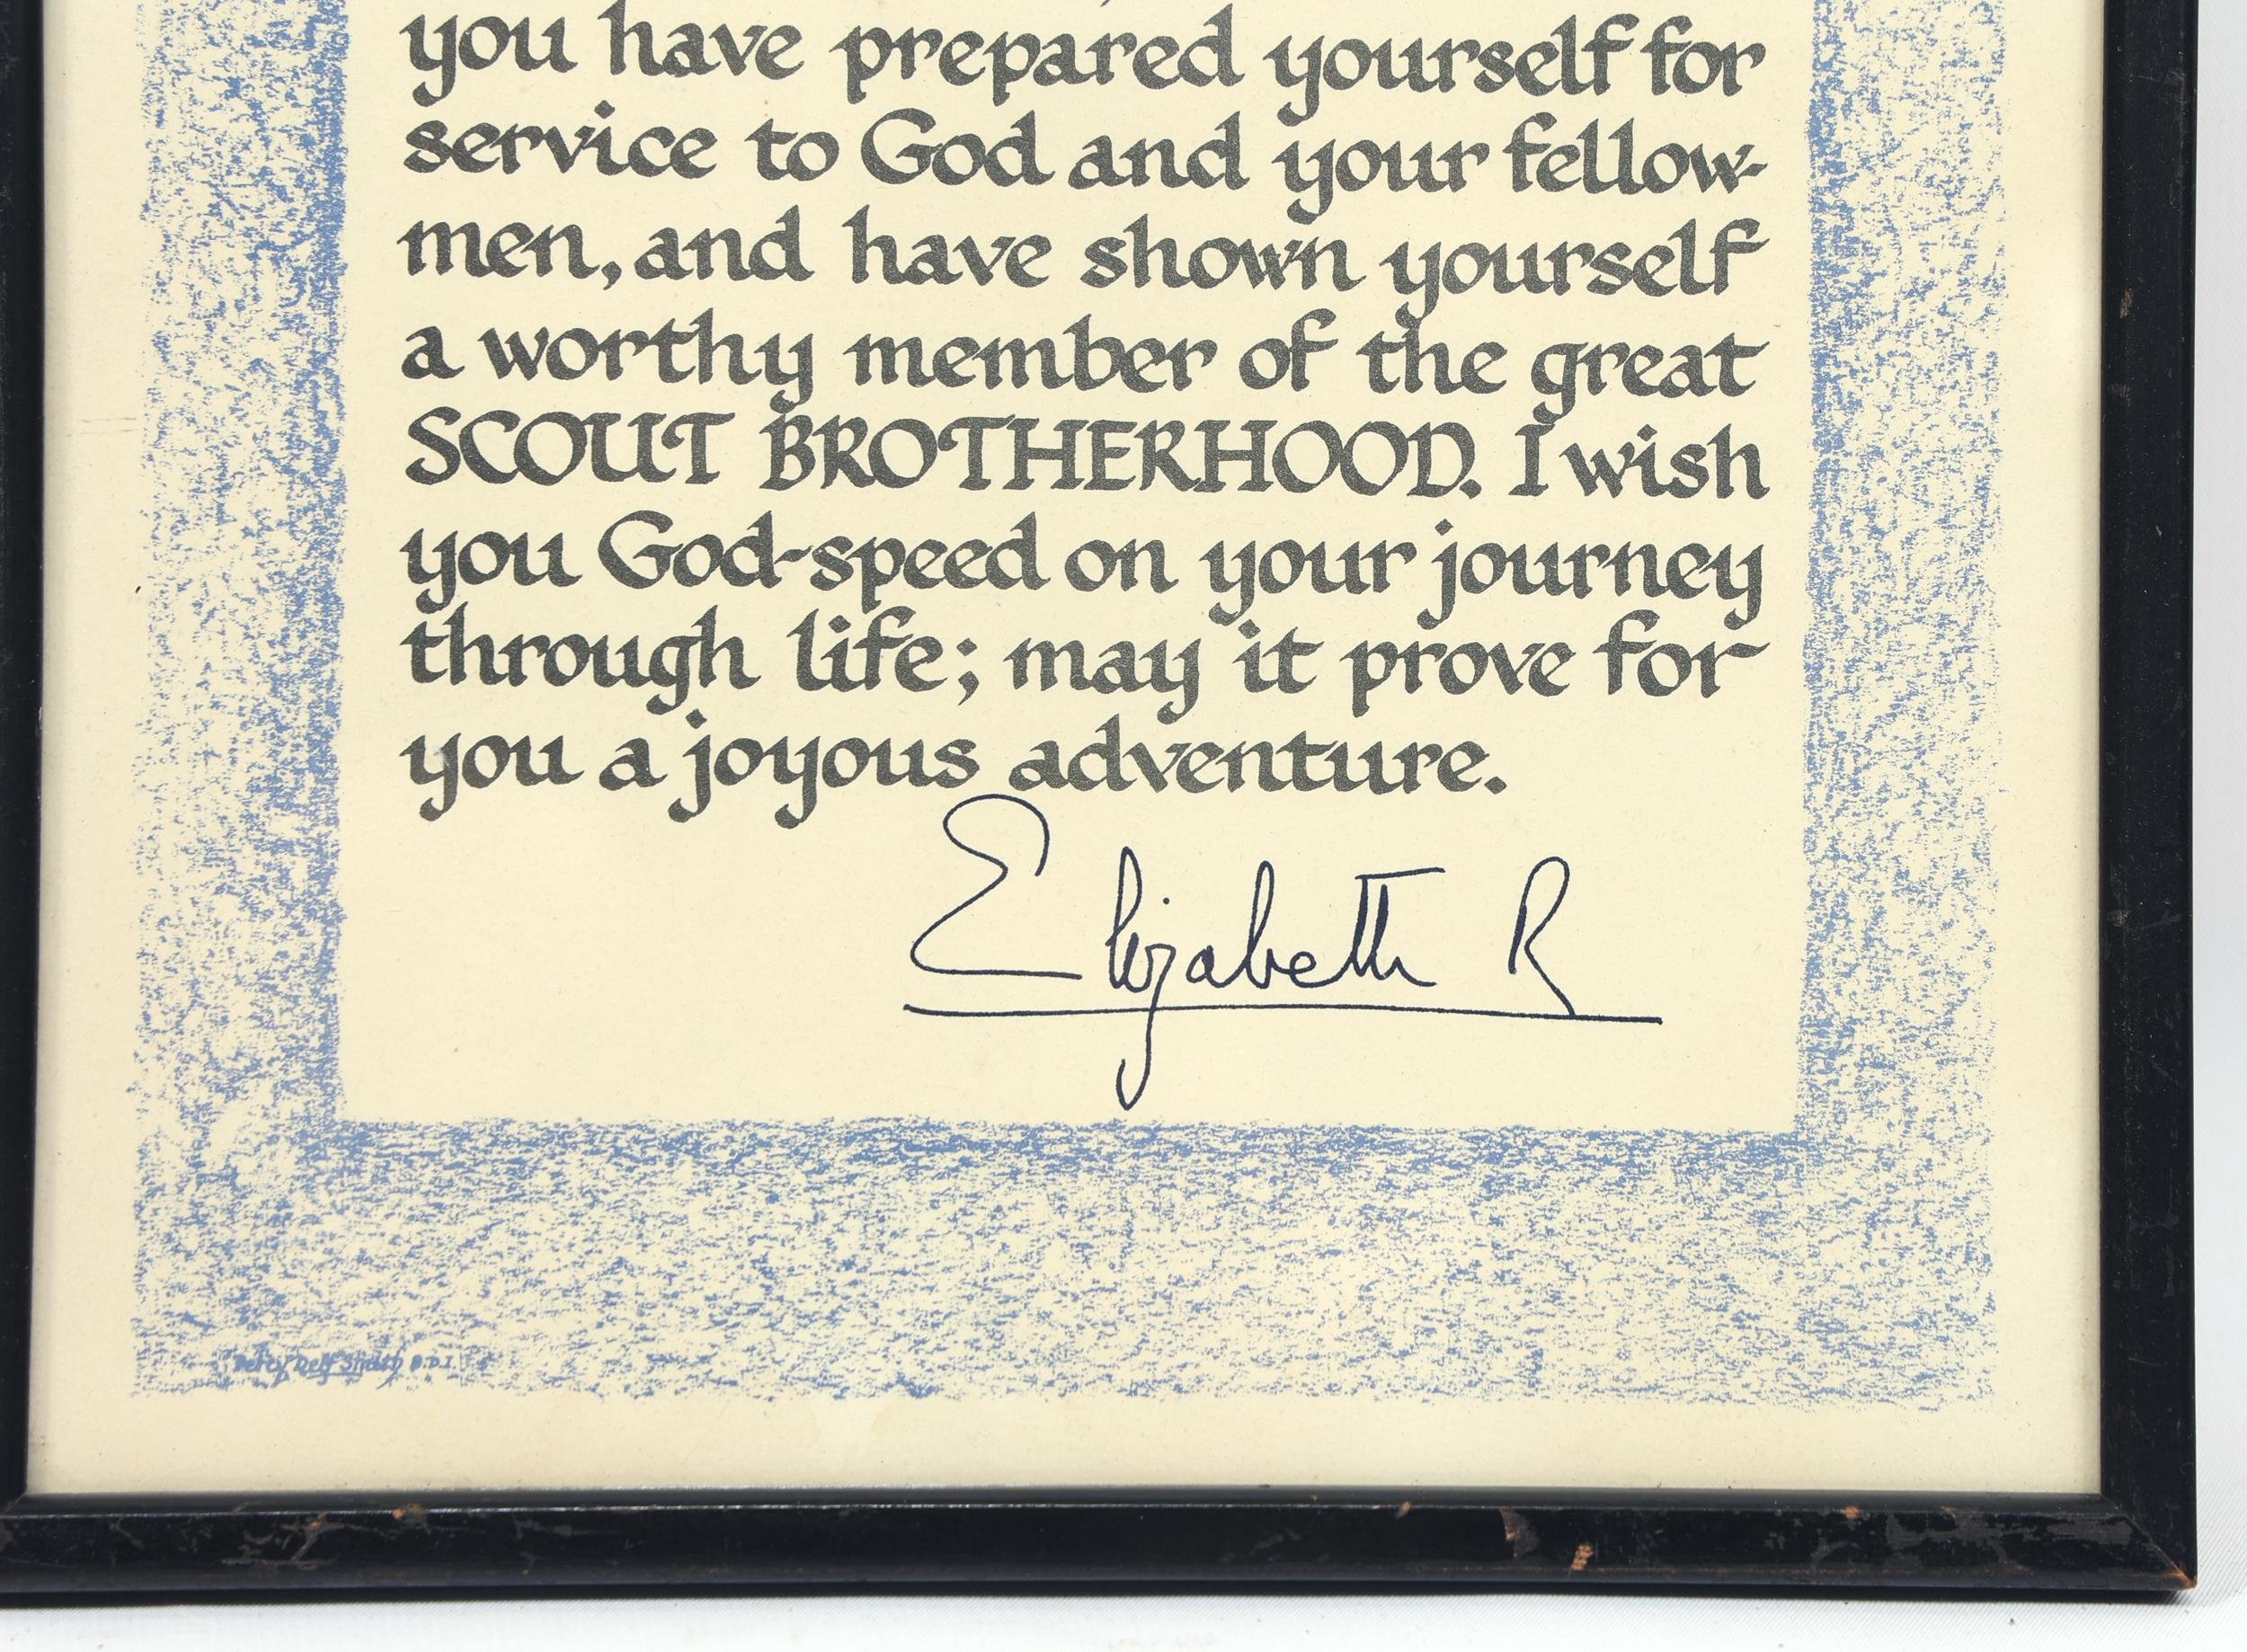 you have prepared yourself for
service to God and your fellow-
men, and have shown yourself
a worthy member of the great
SCOUT BROTHERHOOD. I wish
you God-speed on your journey
through life; may it prove for
you a joyous adventure.
Elizabeth R
Percy Delf Smith